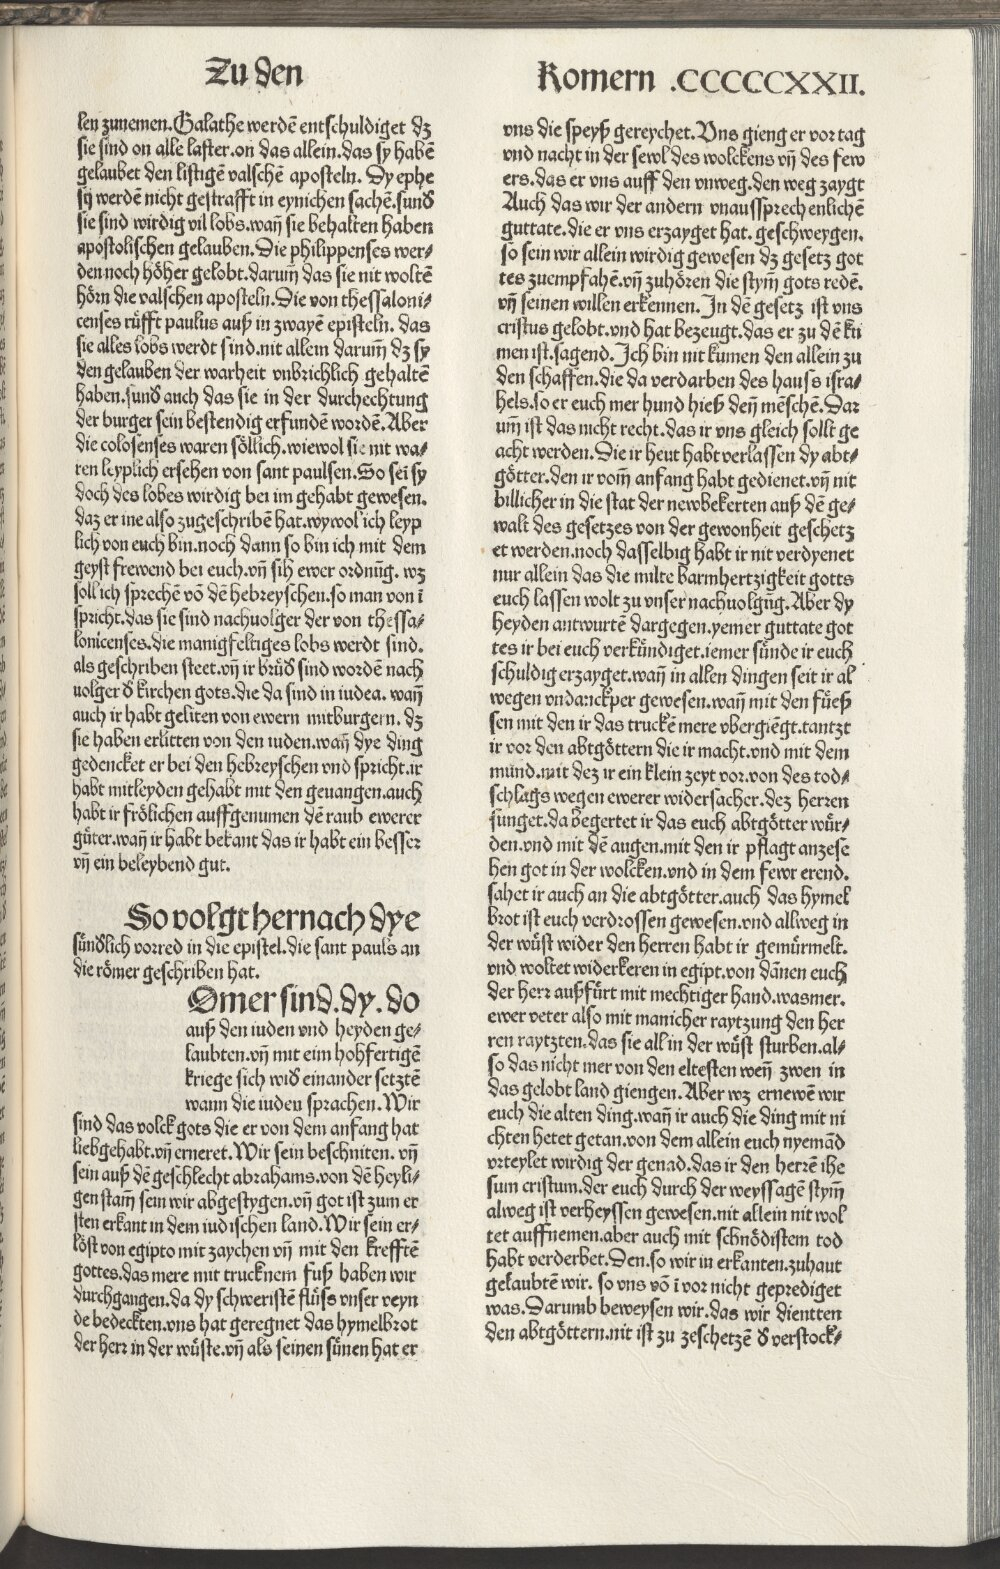 Zu den
Romern .CCCCCCXXII.
len zunemen.Galathe werdē entschuldiget dz
sie sind on alle laster.on das allein.das sy habē
gelaubet den listigē valschē aposteln. Dy ephe
sij werdē nicht gestrafft in eynichen sachē.sund̄
sie sind wirdig vil lobs.wañ sie behalten haben
apostolischen gelauben.Die philippenses wer-
den noch höher gelobt.darum̄ das sie nit woltē
hörn die valschen aposteln.Die von thessaloni-
censes rüfft paulus auß in zwayē episteln. das
sie alles lobs werdt sind.nit allein darum̄ dz sy
den gelauben der warheit vnbrichlich gehaltē
haben.sund̄ auch das sie in der durchechtung
der burger sein bestendig erfundē wordē.Aber
die colosenses waren söllich.wiewol sie nit wa-
ren leyplich ersehen von sant paulsen.So sei sy
doch des lobes wirdig bei im gehabt gewesen.
daz er ine also zugeschribē hat.wywol ich leyp
lich von euch bin.noch dann so bin ich mit dem
geyst frewend bei euch.vñ sih ewer ordnūg. wz
soll ich sprechē vō dē hebreyschen.so man von ī
spricht.das sie sind nachuolger der von thessa-
lonicenses.die manigfeltiges lobs werdt sind.
als geschriben steet.vñ ir brüd̄ sind wordē nach
uolger d̄ kirchen gots.die da sind in iudea. wañ
auch ir habt geliten von ewern mitburgern. dz
sie haben erlitten von den iuden.wañ dye ding
gedencket er bei den hebreyschen vnd spricht.ir
habt mitleyden gehabt mit den geuangen.auch
habt ir frölichen auffgenumen dē raub ewerer
güter.wañ ir habt bekant das ir habt ein besser
vñ ein beleybend gut.
So volgt hernach dye
sündlich vorred in die epistel.die sant pauls an
die römer geschriben hat.
Omer sind.dy.do
auß den iuden vnd heyden ge-
laubten.vñ mit eim hohfertigē
kriege sich wid̄ einander setztē
wann die iuden sprachen.Wir
sind das volck gots die er von dem anfang hat
liebgehabt.vñ erneret.Wir sein beschniten. vñ
sein auß dē geschlecht abrahams.von dē heyli-
gen stam̄ sein wir abgestygen.vñ got ist zum er
sten erkant in dem iudischen land.Wir sein er-
löst von egipto mit zaychen vñ mit den krefftē
gottes.das mere mit trucknem fuß haben wir
durchgangen.da dy schweristē flüss vnser veyn
de bedeckten.vns hat geregnet das hymelbrot
der herr in der wüste.vñ als seinen sünen hat er
vns die speyß gereychet.Vns gieng er vor tag
vnd nacht in der sewl des wolckens vñ des few
ers.das er vns auff den vnweg.den weg zaygt
Auch das wir der andern vnaussprechenlichē
guttate.die er vns erzayget hat. geschweygen.
so sein wir allein wirdig gewesen dz gesetz got
tes zuempfahē.vñ zuhören die stym̄ gots redē.
vñ seinen willen erkennen. In dē gesetz ist vns
cristus gelobt.vnd hat bezeugt.das er zu dē ku
men ist.sagend.Ich bin nit kumen den allein zu
den schaffen.die da verdarben des hauss isra-
hels.so er euch mer hund hieß deñ mēschē.Dar
um̄ ist das nicht recht.das ir vns gleich sollt ge
acht werden.Die ir heut habt verlassen dy abt-
götter.den ir vom̄ anfang habt gedienet.vñ nit
billicher in die stat der newbekerten auß dē ge-
walt des gesetzes von der gewonheit geschetz
et werden.noch dasselbig habt ir nit verdyenet
nur allein das die milte barmhertzigkeit gotts
euch lassen wolt zu vnser nachuolgūg.Aber dy
heyden antwurtē dargegen.yemer guttate got
tes ir bei euch verkündiget.iemer sünde ir euch
schuldig erzayget.wañ in allen dingen seit ir al
wegen vndanckper gewesen.wañ mit den füeß
sen mit den ir das truckē mere vbergiēgt.tantzt
ir vor den abtgöttern die ir macht.vnd mit dem
mund.mit dez ir ein klein zeyt vor.von des tod-
schlags wegen ewerer widersacher.dez herren
sunget.da begertet ir das euch abtgötter wür-
den.vnd mit dē augen.mit den ir pflagt anzese
hen got in der wolcken.vnd in dem fewr erend.
sahet ir auch an die abtgötter.auch das hymel
brot ist euch verdrossen gewesen.vnd allweg in
der wüst wider den herren habt ir gemürmelt.
vnd woltet widerkeren in egipt.von dānen euch
der herr außfürt mit mechtiger hand.wasmer.
ewer veter also mit manicher raytzung den her
ren raytzten.das sie all in der wüst sturben.al-
so das nicht mer von den eltesten weñ zwen in
das gelobt land giengen.Aber wz ernewē wir
euch die alten ding.wañ ir auch die ding mit ni
chten hetet getan.von dem allein euch nyemād
vrteylet wirdig der genad.das ir den herrē ihe
sum cristum.der euch durch der weyssagē stym̄
alweg ist verheyssen gewesen.nit allein nit wol
tet auffnemen.aber auch mit schnödistem tod
habt verderbet.Den.so wir in erkanten.zuhaut
gelaubtē wir. so vns vō ī vor nicht geprediget
was.Darumb beweysen wir.das wir dientten
den abtgöttern.nit ist zu zeschetzē d̄ verstock-